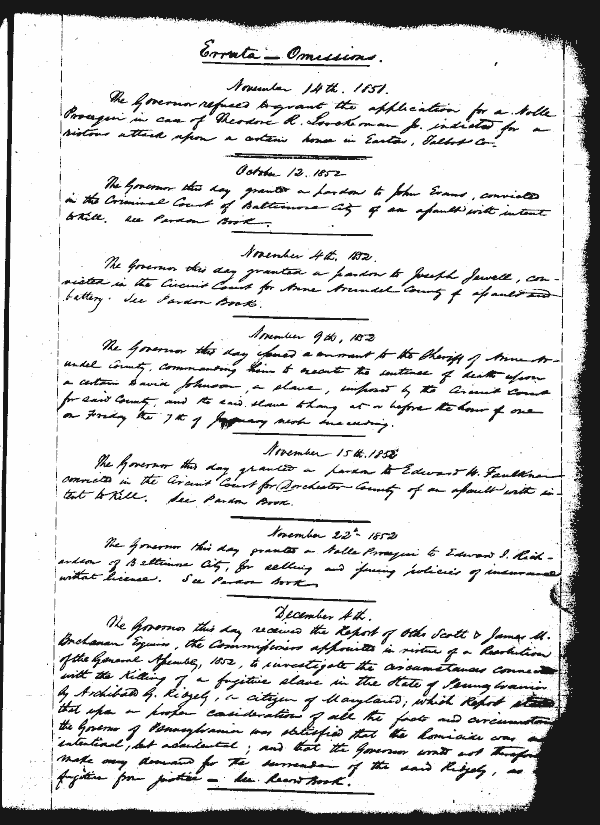 Errata — Omissions.
November 14th. 1851.
The Governor refused to grant the application for a Nolle
Prosequi in case of Theodore R. Loockerman Jr. indicted for a
riotous attack upon a certain house in Easton, Talbot Co.
October 12. 1852
The Governor this day granted a pardon to John Evans, convicted
in the Criminal Court of Baltimore City of an assault with intent
to Kill. See Pardon Book.
November 4th. 1852.
The Governor this day granted a pardon to Joseph Jewell, con-
victed in the Circuit Court for Anne Arundel County of assault and
battery. See Pardon Book.
November 9th, 1852
The Governor this day issued a warrant to the Sheriff of Anne Ar-
undel County, commanding him to execute the sentence of death upon
a certain David Johnson, a slave, imposed by the Circuit Court
for said County, and the said slave to hang at or before the hour of one
on Friday the 7th of January next succeeding.
November 15th. 1852
The Governor this day granted a pardon to Edward H. Faulkner
convicted in the Circuit Court for Dorchester County of an assault with in-
tent to Kill. See Pardon Book.
November 22d 1852
The Governor this day granted a Nolle Prosequi to Edward I. Rich-
ardson of Baltimore City, for selling and issuing policies of insurance
without license. See Pardon Book
December 4th.
The Governor this day received the Report of Otho Scott & James M.
Buchanan Esquires, the Commissioners appointed in virtue of a Resolution
of the General Assembly, 1852, to investigate the circumstances connected
with the Killing of a fugitive slave in the State of Pennsylvania
by Archibald G. Ridgely, a citizen of Maryland; which Report
that upon a proper consideration of all the facts and circumstances
the Governor of Pennsylvania was satisfied that the homicide was
intentional, but accidental; and that the Governor would not therefore
make any demand for the surrender of the said Ridgely, as
fugitive from justice — See Record Book.